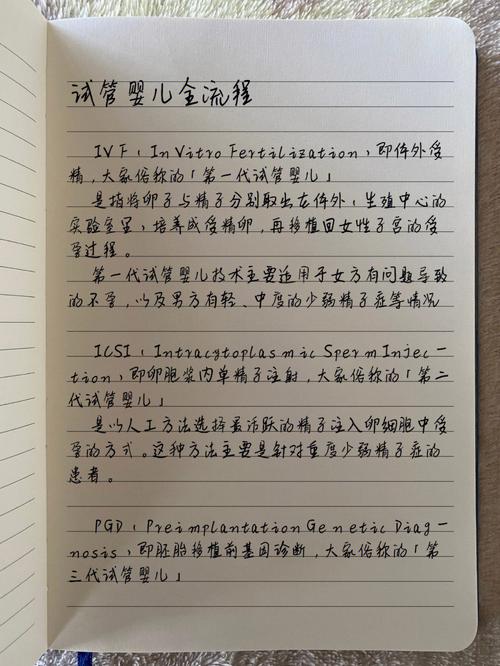 试管婴儿全流程
IVF：In Vitro Fertilization，即体外受
精，大家俗称的「第一代试管婴儿」
是指将卵子与精子分别取出在体外，生殖中心的
实验室里，培养成受精卵，再移植回女性子宫的受
孕过程。
第一代试管婴儿技术主要适用于女方有问题导致
的不孕，以及男方有轻、中度的少弱精子症等情况
ICSI：Intracytoplasmic Sperm Injec-
tion，即卵胞浆内单精子注射，大家俗称的「第二
代试管婴儿」
是以人工方法选择最活跃的精子注入卵细胞中受
孕的方式。这种方法主要是针对重度少弱精子症的
患者。
PGD：Preimplantation Genetic Diag-
nosis，即胚胎移植前基因诊断，大家俗称的「第
三代试管婴儿」